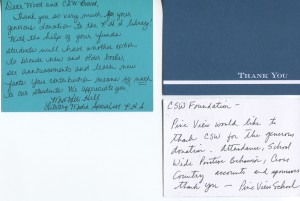 Dear Mead and CSW Board,
Thank you so very much for your
generous donation to the P.H.S. library!
With the help of your funds
students will have another option
to browse new and older books,
see announcements and learn new
facts. Your contribution means so much
to our students. We appreciate you.
Hill
Library Media Specialist P.H.S.
THANK YOU
CSW Foundation -
Pine View would like to
thank CSW for the generous
donation. Attendance, School
Wide Positive Behavior, Cross
Country accounts and sponsors
thank you - Pine View School